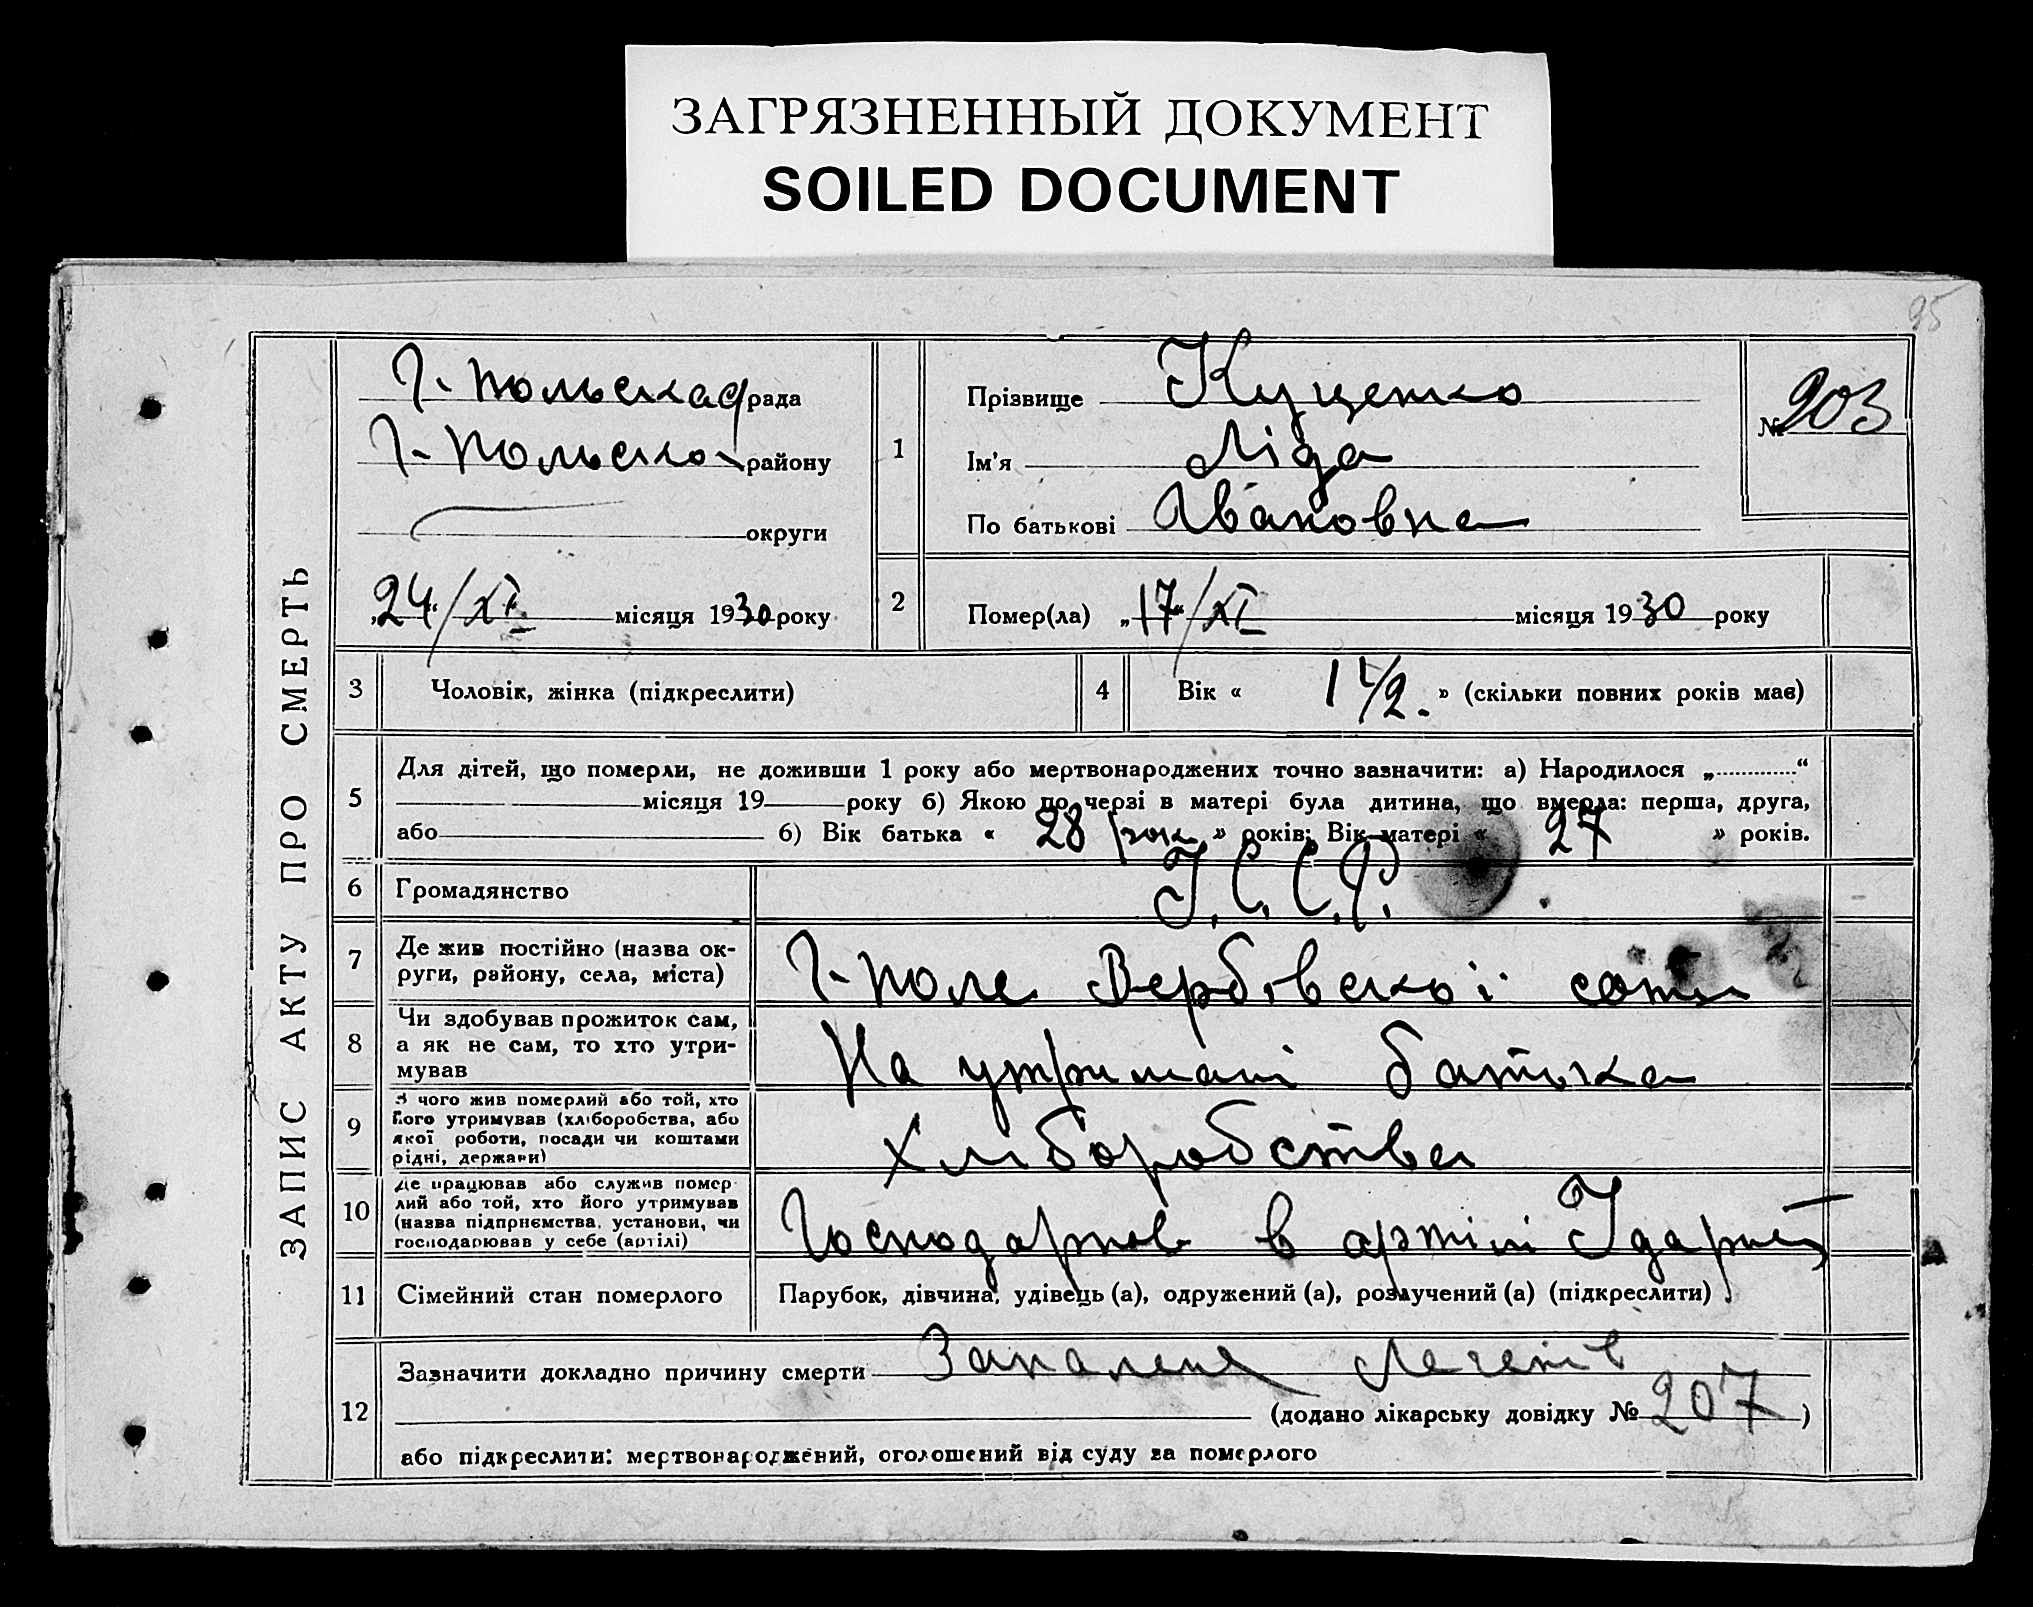 ЗАГРЯЗНЕННЫЙ ДОКУМЕНТ
SOILED DOCUMENT
95
ЗАПИС АКТУ ПРО СМЕРТЬ
Г-Польська рада
Г-Польсько району
округи
„24“/XI місяця 1930 року
1
Прізвище Куценко
Ім'я Ліда
По батькові Івановна
№ 203
2
Помер(ла) „17“/XI місяця 1930 року
3
Чоловік, жінка (підкреслити)
4
Вік « 1 1/2. » (скільки повних років має)
5
Для дітей, що померли, не доживши 1 року або мертвонароджених точно зазначити: а) Народилося „ “
місяця 19 року б) Якою по черзі в матері була дитина, що вмерла: перша, друга,
або б) Вік батька « 28 рок » років; Вік матері « 27 » років.
6
Громадянство
У.С.С.Р.
7
Де жив постійно (назва ок-
руги, району, села, міста)
Г-Поле Вербівської сотні
8
Чи здобував прожиток сам,
а як не сам, то хто утри-
мував
На утримані батька
9
З чого жив померлий або той, хто
його утримував (хліборобства, або
якої роботи, посади чи коштами
рідні, держави)
Хліборобства
10
Де працював або служив помер
лий або той, хто його утримував
(назва підприємства, установи, чи
господарював у себе (артілі)
Господарюв в артілі
11
Сімейний стан померлого
Парубок, дівчина, удівець (а), одружений (а), розлучений (а) (підкреслити)
12
Зазначити докладно причину смерти Запалення Легенів
(додано лікарську довідку № 207)
або підкреслити: мертвонароджений, оголошений від суду за померлого